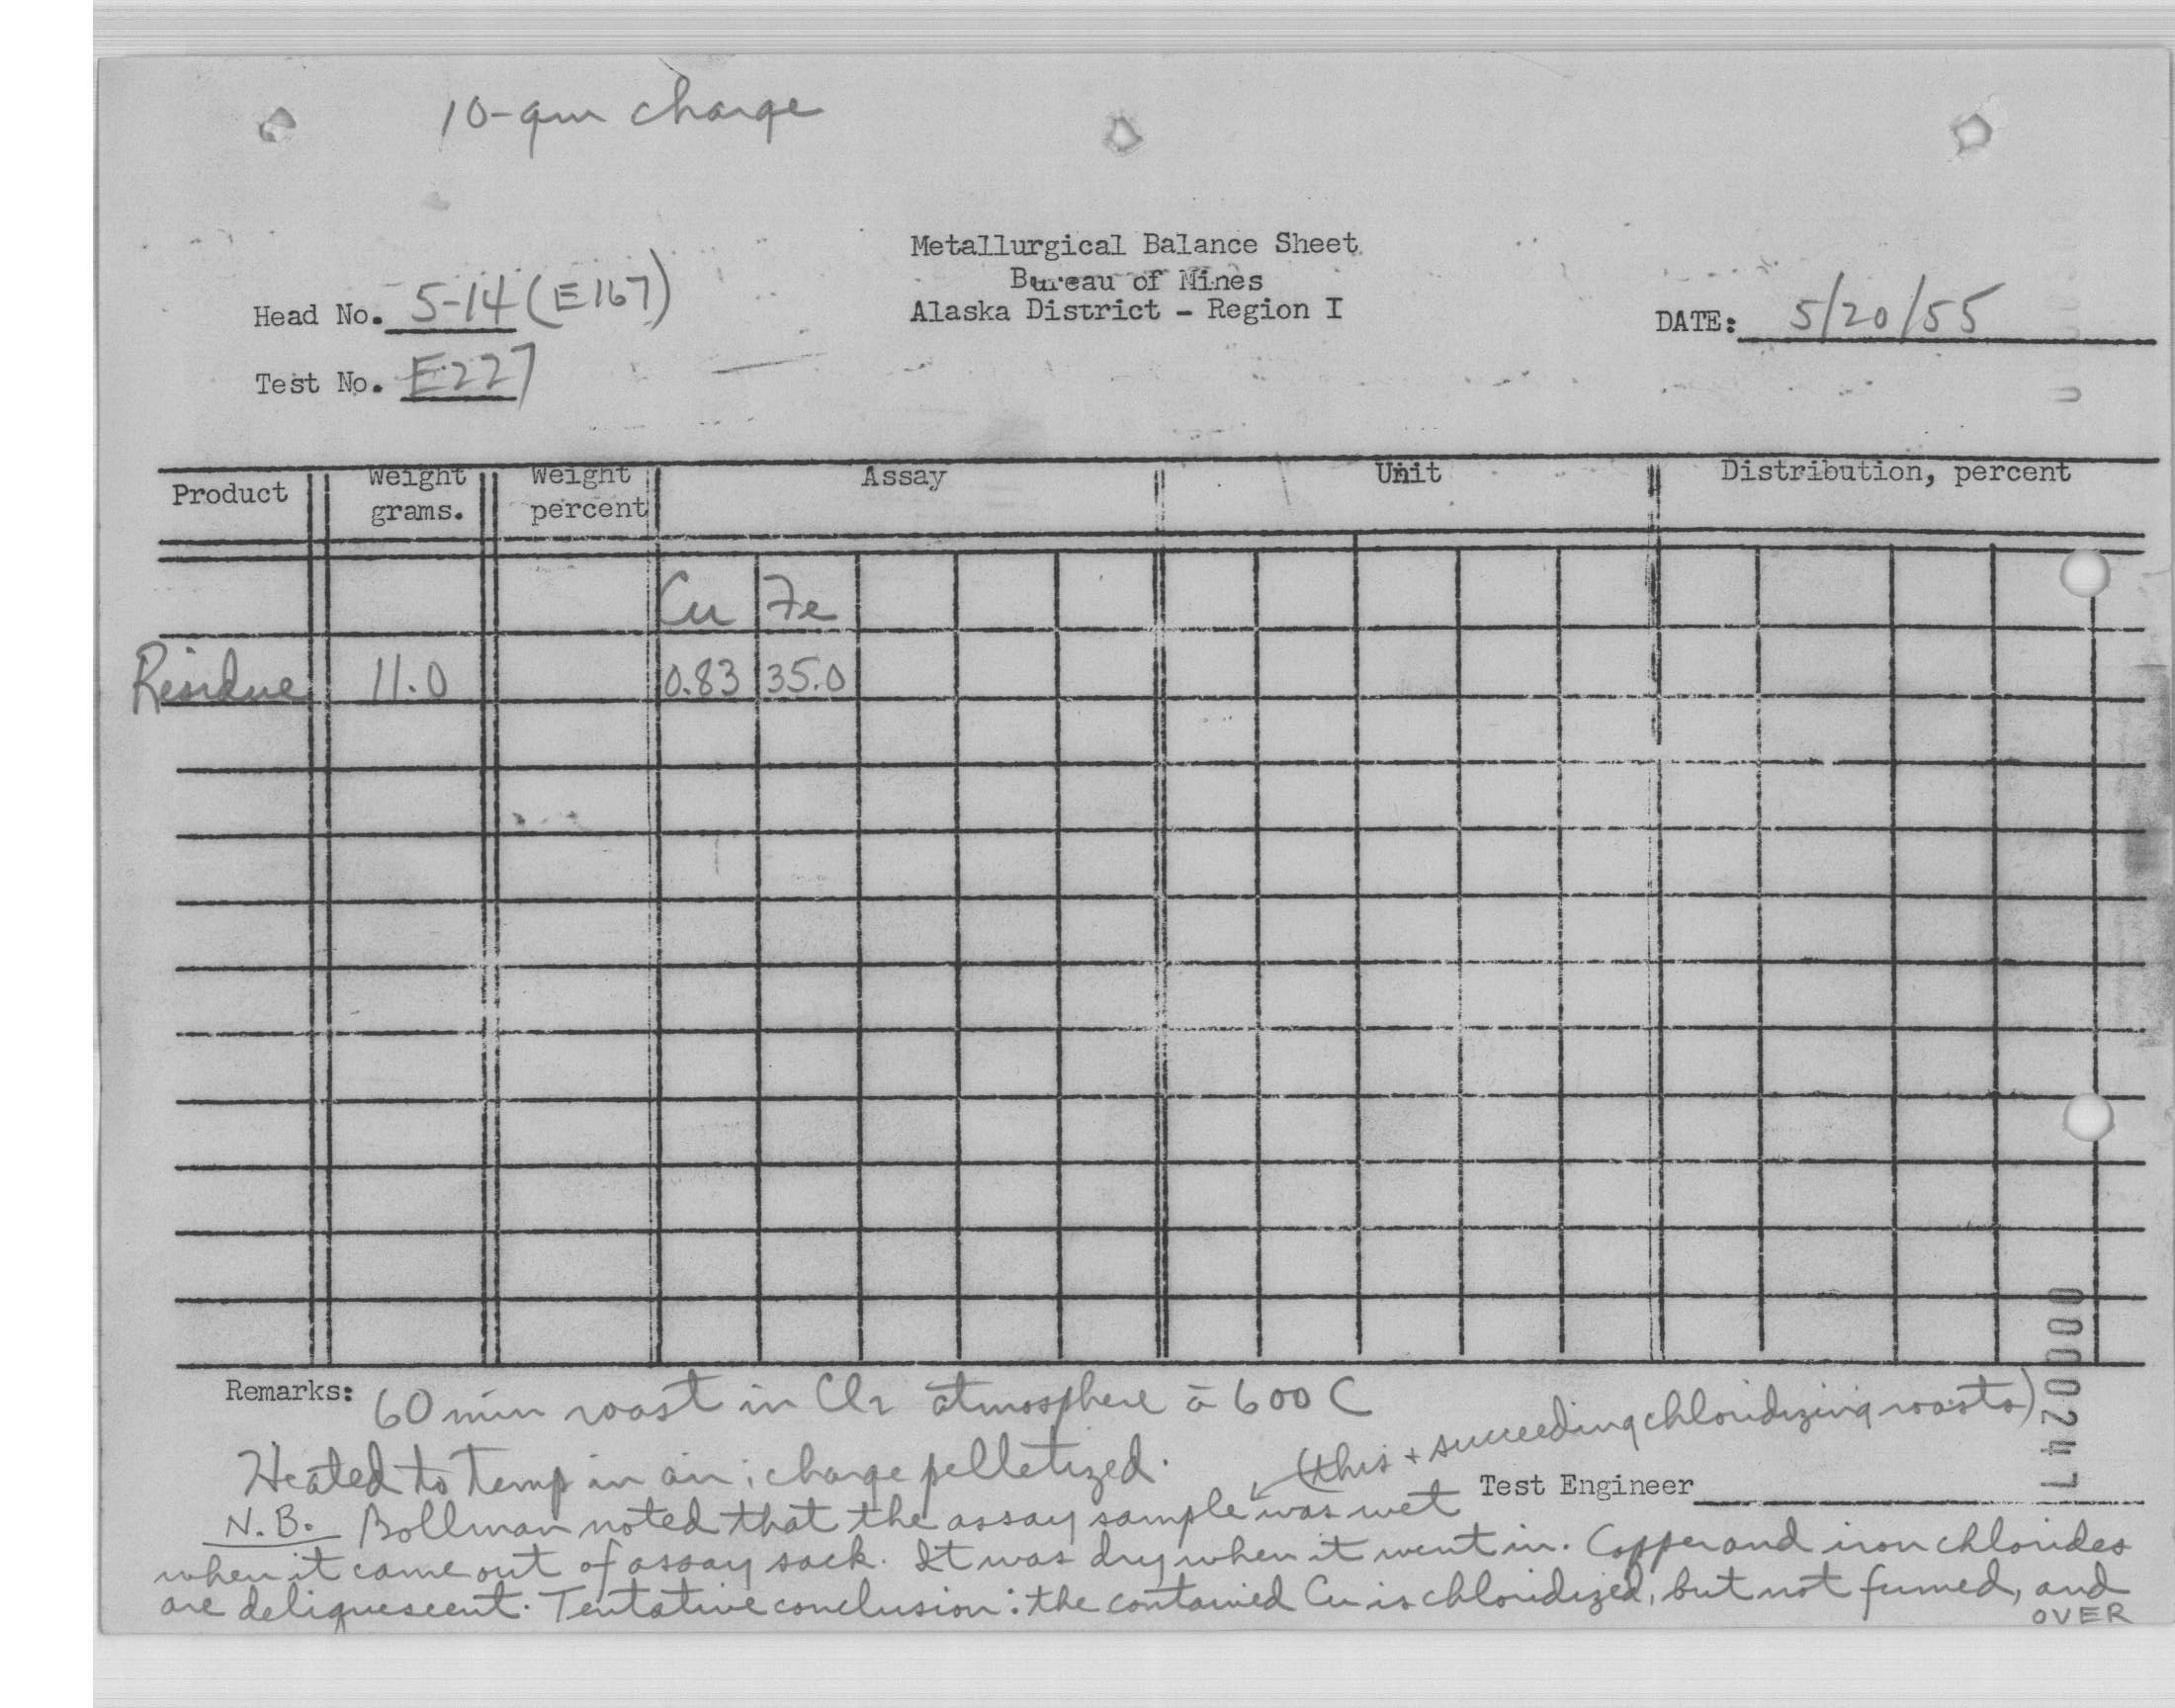 10-gm charge
Metallurgical Balance Sheet
Bureau of Mines
Alaska District - Region I
Head No. 5-14 (E167)
DATE: 5/20/55
Test No. E227
Product Weight grams. Weight percent Assay Unit Distribution, percent
Cu Fe
Residue 11.0 0.83 35.0
Remarks: 60 min roast in Cl2 atmosphere ā 600 C
(this + succeeding chloridizing roasts)
Heated to temp in air; charge pelletized.
Test Engineer
N.B. Bollman noted that the assay sample was wet
when it came out of assay sack. It was dry when it went in. Copper and iron chlorides
are deliquescent. Tentative conclusion: the contained Cu is chloridized, but not fumed, and
OVER
0000247